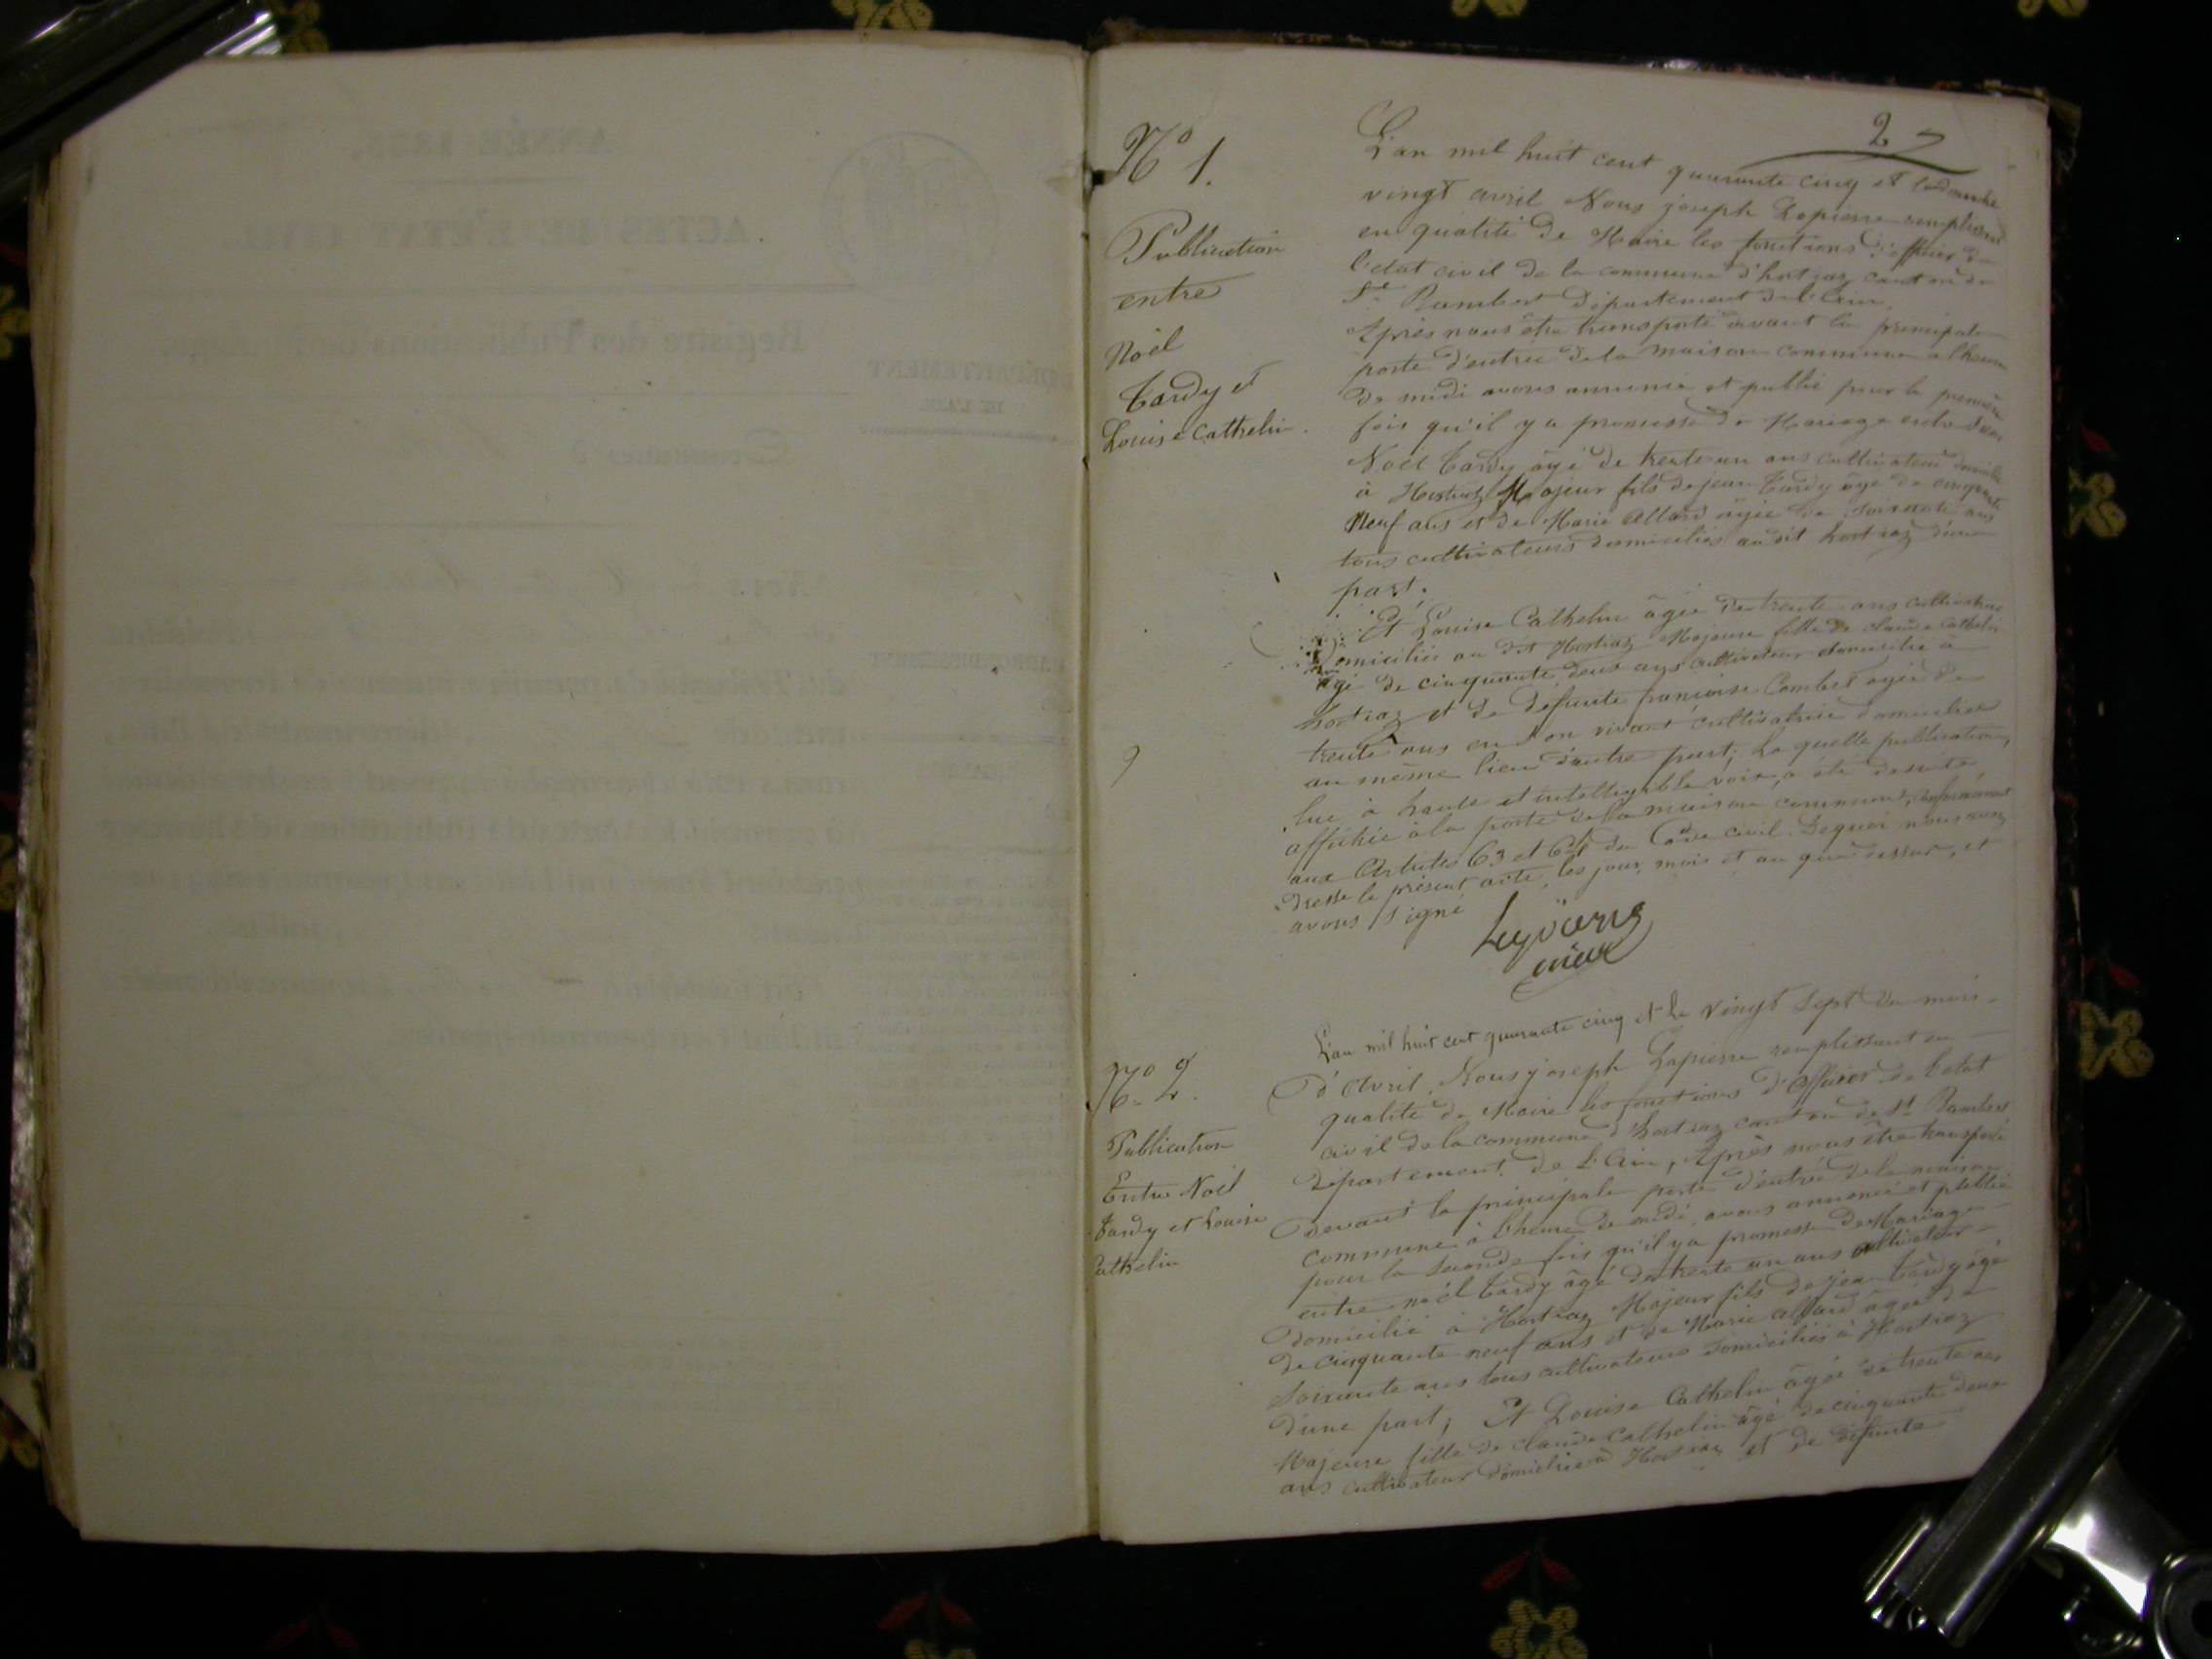 2
N° 1.
Publication
entre
Noël
Tardy et
Louise Cathelin.
L'an mil huit cent quarante cinq et le dimanche
vingt avril Nous joseph Lapierre remplissant
en qualité de Maire les fonctions d'officier de
l'état civil de la commune d'hostiaz canton de
St Rambert département de l'Ain.
Après nous être transporté devant la principale
porte d'entrée de la maison commune a lheure
de midi avons annoncé et publié pour la première
fois qu'il y a promesse de Mariage entre
Noël Tardy âgé de trente un ans cultivateur domicilié
à Hostiaz Majeur fils de jean Tardy âgé de cinquante
Neuf ans et de Marie Allard âgée de soixante ans
tous cultivateurs domiciliés au dit hostiaz d'une
part;
Et Louise Cathelin âgée de trente ans cultivatrice
Domiciliée au dit Hostiaz Majeure fille de claude Cathelin
âgé de cinquante deux ans cultivateur domicilié à
hostiaz et de défunte francoise Combet agée de
trente ans en son vivant cultivatrice domiciliée
au même lieu d'autre part; La quelle publication,
lue à haute et intelligible voix, a été de suite
affichée à la porte de la maison commune, conformément
aux Articles 63 et 64 du Code civil. Dequoi nous avons
dressé le présent acte, les jour, mois et an que dessus, et
avons signé
N° 2.
Publication
Entre Noël
Tardy et Louise
Cathelin
L'an mil huit cent quarante cinq et le vingt Sept du mois
d'Avril, Nous joseph Lapierre remplissant en
qualité de Maire les fonctions d'officier de l'etat
civil de la commune d'hostiaz canton de St Rambert
département de l'Ain, Après nous être transporté
devant la principale porte d'entrée de la maison
commune à l'heure de midi, avons annoncé et publié
pour la seconde fois qu'il y a promesse de Mariage
entre noël Tardy âgé de trente un ans cultivateur
domicilié à Hostiaz Majeur fils de jean Tardy âgé
de cinquante neuf ans et de Marie allard âgée de
soixante ans tous cultivateurs domiciliés à Hostiaz
d'une part; Et Louise Cathelin âgée de trente ans
Majeure fille de claude Cathelin âgé de cinquante deux
ans cultivateur domicilié à Hostiaz et de défunte